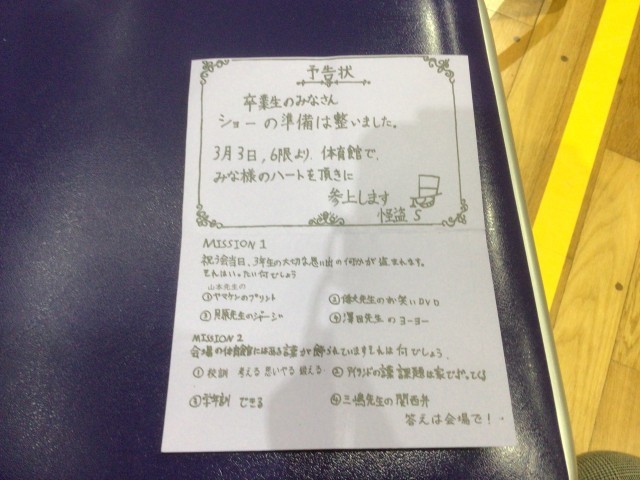 予告状
卒業生のみなさん
ショーの準備は整いました。
3月3日,6限より,体育館で,
みな様のハートを頂きに
参上します
怪盗 S
MISSION 1
祝う会当日、3年生の大切な思い出の何かが盗まれます。
それはいったい何でしょう
山本先生の
①ヤマケンのプリント
②偉大先生のお笑いDVD
③貝原先生のジャージ
④澤田先生のヨーヨー
MISSION 2
会場の体育館にはある言葉が飾られていますそれは何でしょう.
①校訓 考える 思いやる 鍛える
課題は家でやってくる
③学年訓 できる
④三嶋先生の関西弁
答えは会場で! →